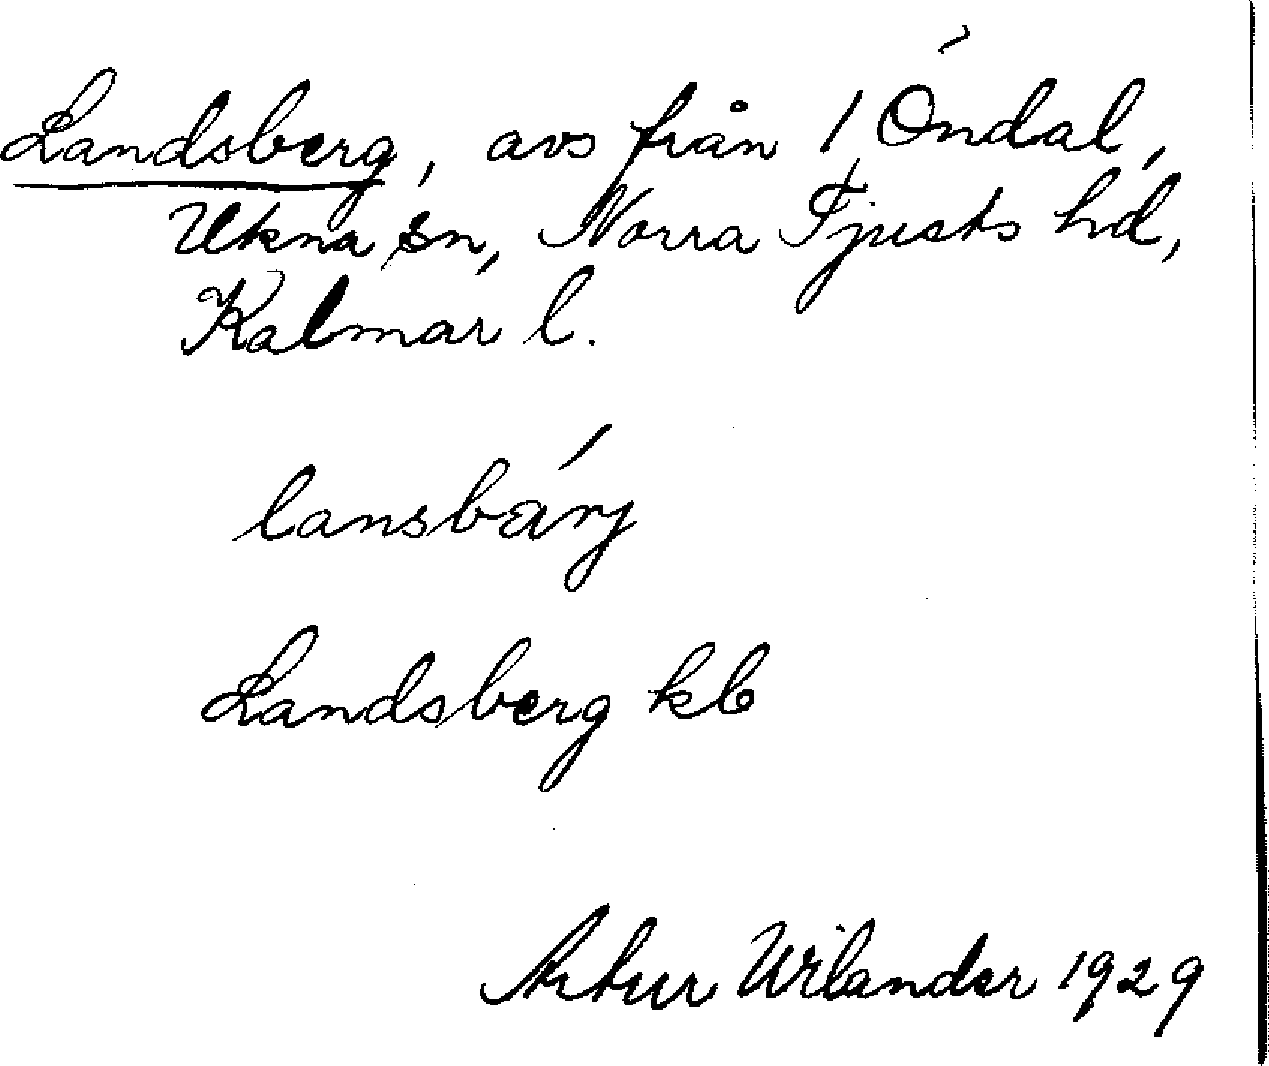 Landsberg, avs från 1 Öndal,
Ukna sn, Norra Tjusts hd,
Kalmar l.
lansbärj
Landsberg kb
Artur Wilander 1929